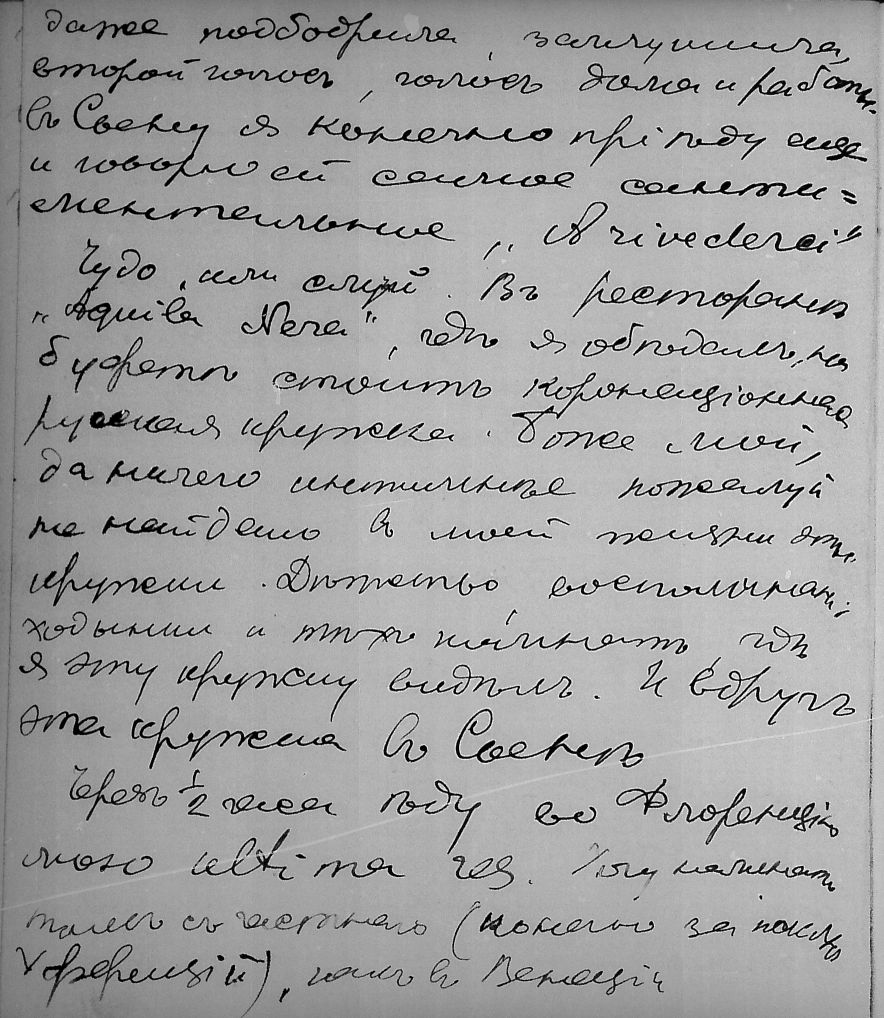 даже подбодрила, заглушила,
второй голосъ, голосъ дома и работы.
Въ Сьену я конечно пріѣду еще
и говорю ей самое санти=
ментальное „Arivederci"
Чудо, или случай. Въ ресторанѣ
„Aquila Nera", гдѣ я обѣдалъ, на
буфетѣ стоитъ коронаціонная
русская кружка. Боже мой,
да ничего интимнѣе пожалуй
не найдешь въ моей жизни этой
кружки. Дѣтство, воспоминанія
ходынки и комнатъ, гдѣ
я эту кружку видѣлъ. И вдругъ
эта кружка въ Сьенѣ
Черезъ 1/2 часа ѣду во Флоренцію
мою ultima
(конечно за
), какъ въ Венеціи